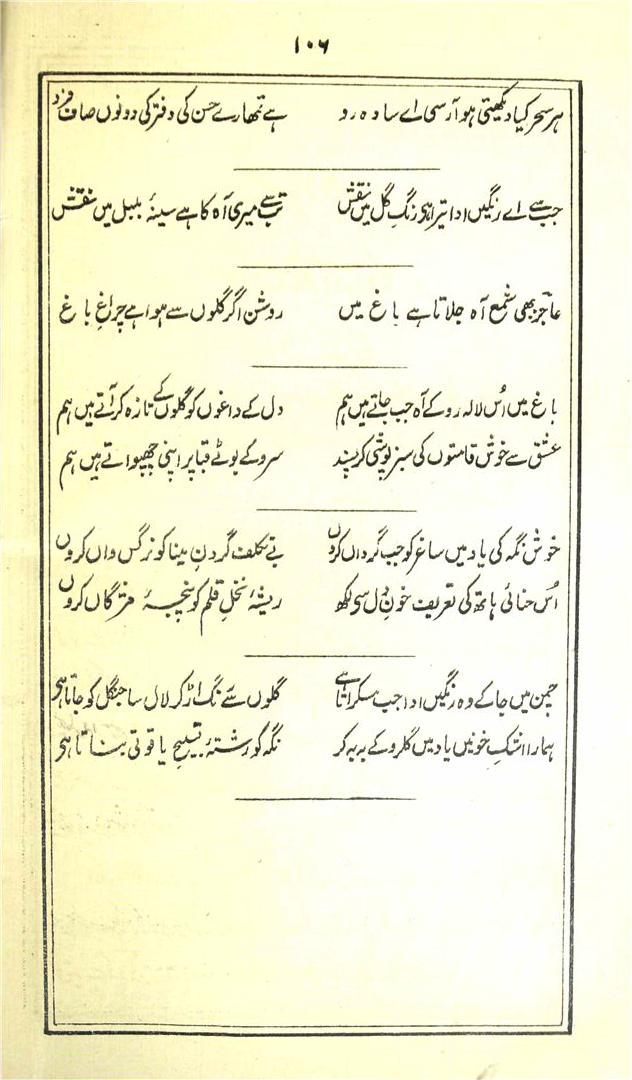 ۱۰۶
ہر سحر کیا دیکھتی ہو آرسی اے سادہ رو ہے تمھارے حسن کی دفتر کی دونوں صاف فرد
جب سے اے رنگیں ادا تیرا ہی رنگِ گل میں نقش تب سے میری آہ کا ہے سینۂ بلبل میں نقش
عاجز بھی شمع آہ جلاتا ہے باغ میں روشن اگر گلوں سے ہوا ہے چراغِ باغ
باغ میں اُس لالہ رو کے آہ جب جاتے ہیں ہم دل کے داغوں کو گلوں کے تازہ کر آتے ہیں ہم
عشق سے خوش قامتوں کی سبز پوشی کر پسند سرو کے بوٹے قبا پر اپنی چھپواتے ہیں ہم
خوش نگہ کی یاد میں ساغر کو جب گرداں کروں بے تکلف گردنِ مینا کو نرگس واں کروں
اُس حنائی ہاتھ کی تعریف خونِ دل سی لکھ ریشۂ نخلِ قلم کو پنجۂ مژگاں کروں
چمن میں جا کے وہ رنگیں ادا جب مسکراتا ہے گلوں سے رنگ اڑ کر لال سا جنگل کو جاتا ہی
ہمارا اشکِ خونیں یاد میں گلرو کے بہ بہ کر نگہ کو رشتۂ تسبیحِ یاقوتی بناتا ہی